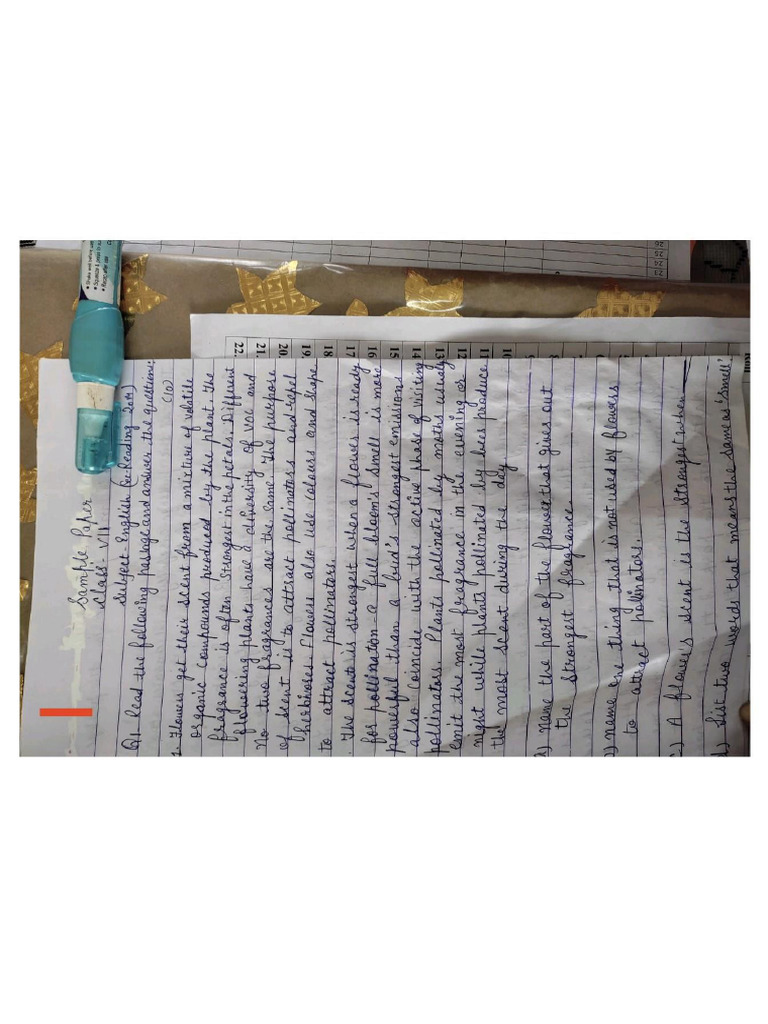 Sample Paper
Class - VII
Subject English (Reading 20M)
Q1 Read the following passage and answer the questions:
(10)
1. Flowers get their scent from a mixture of volatile
organic compounds produced by the plant. The
fragrance is often strongest in the petals. Different
flowering plants have a diversity of VOC and
No two fragrances are the same. The purpose
of scent is to attract pollinators and repel
herbivores. Flowers also use colours and shape
to attract pollinators.
The scent is strongest when a flower is ready
for pollination - a full bloom's smell is more
powerful than a bud's strongest emissions
also coincide with the active phase of visiting
pollinators. Plants pollinated by moths usually
emit the most fragrance in the evening or
night while plants pollinated by bees produce
the most scent during the day.
a) name the part of the flower that gives out
the strongest fragrance.
b) name one thing that is not used by flowers
to attract pollinators.
c) A flower's scent is the strongest when
d) List two words that means the same as 'smell'
22.
21.
20.
19.
18.
17.
16.
15.
14.
13.
12.
11.
10.
Roll